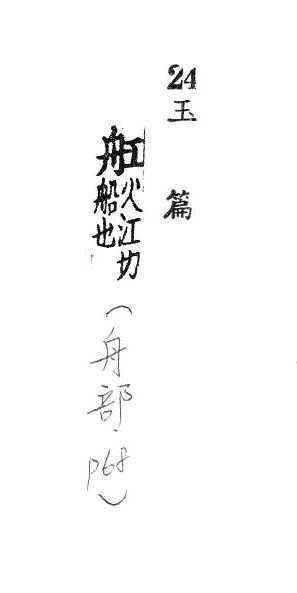 24玉篇
舡火江切船也(舟部.P68)